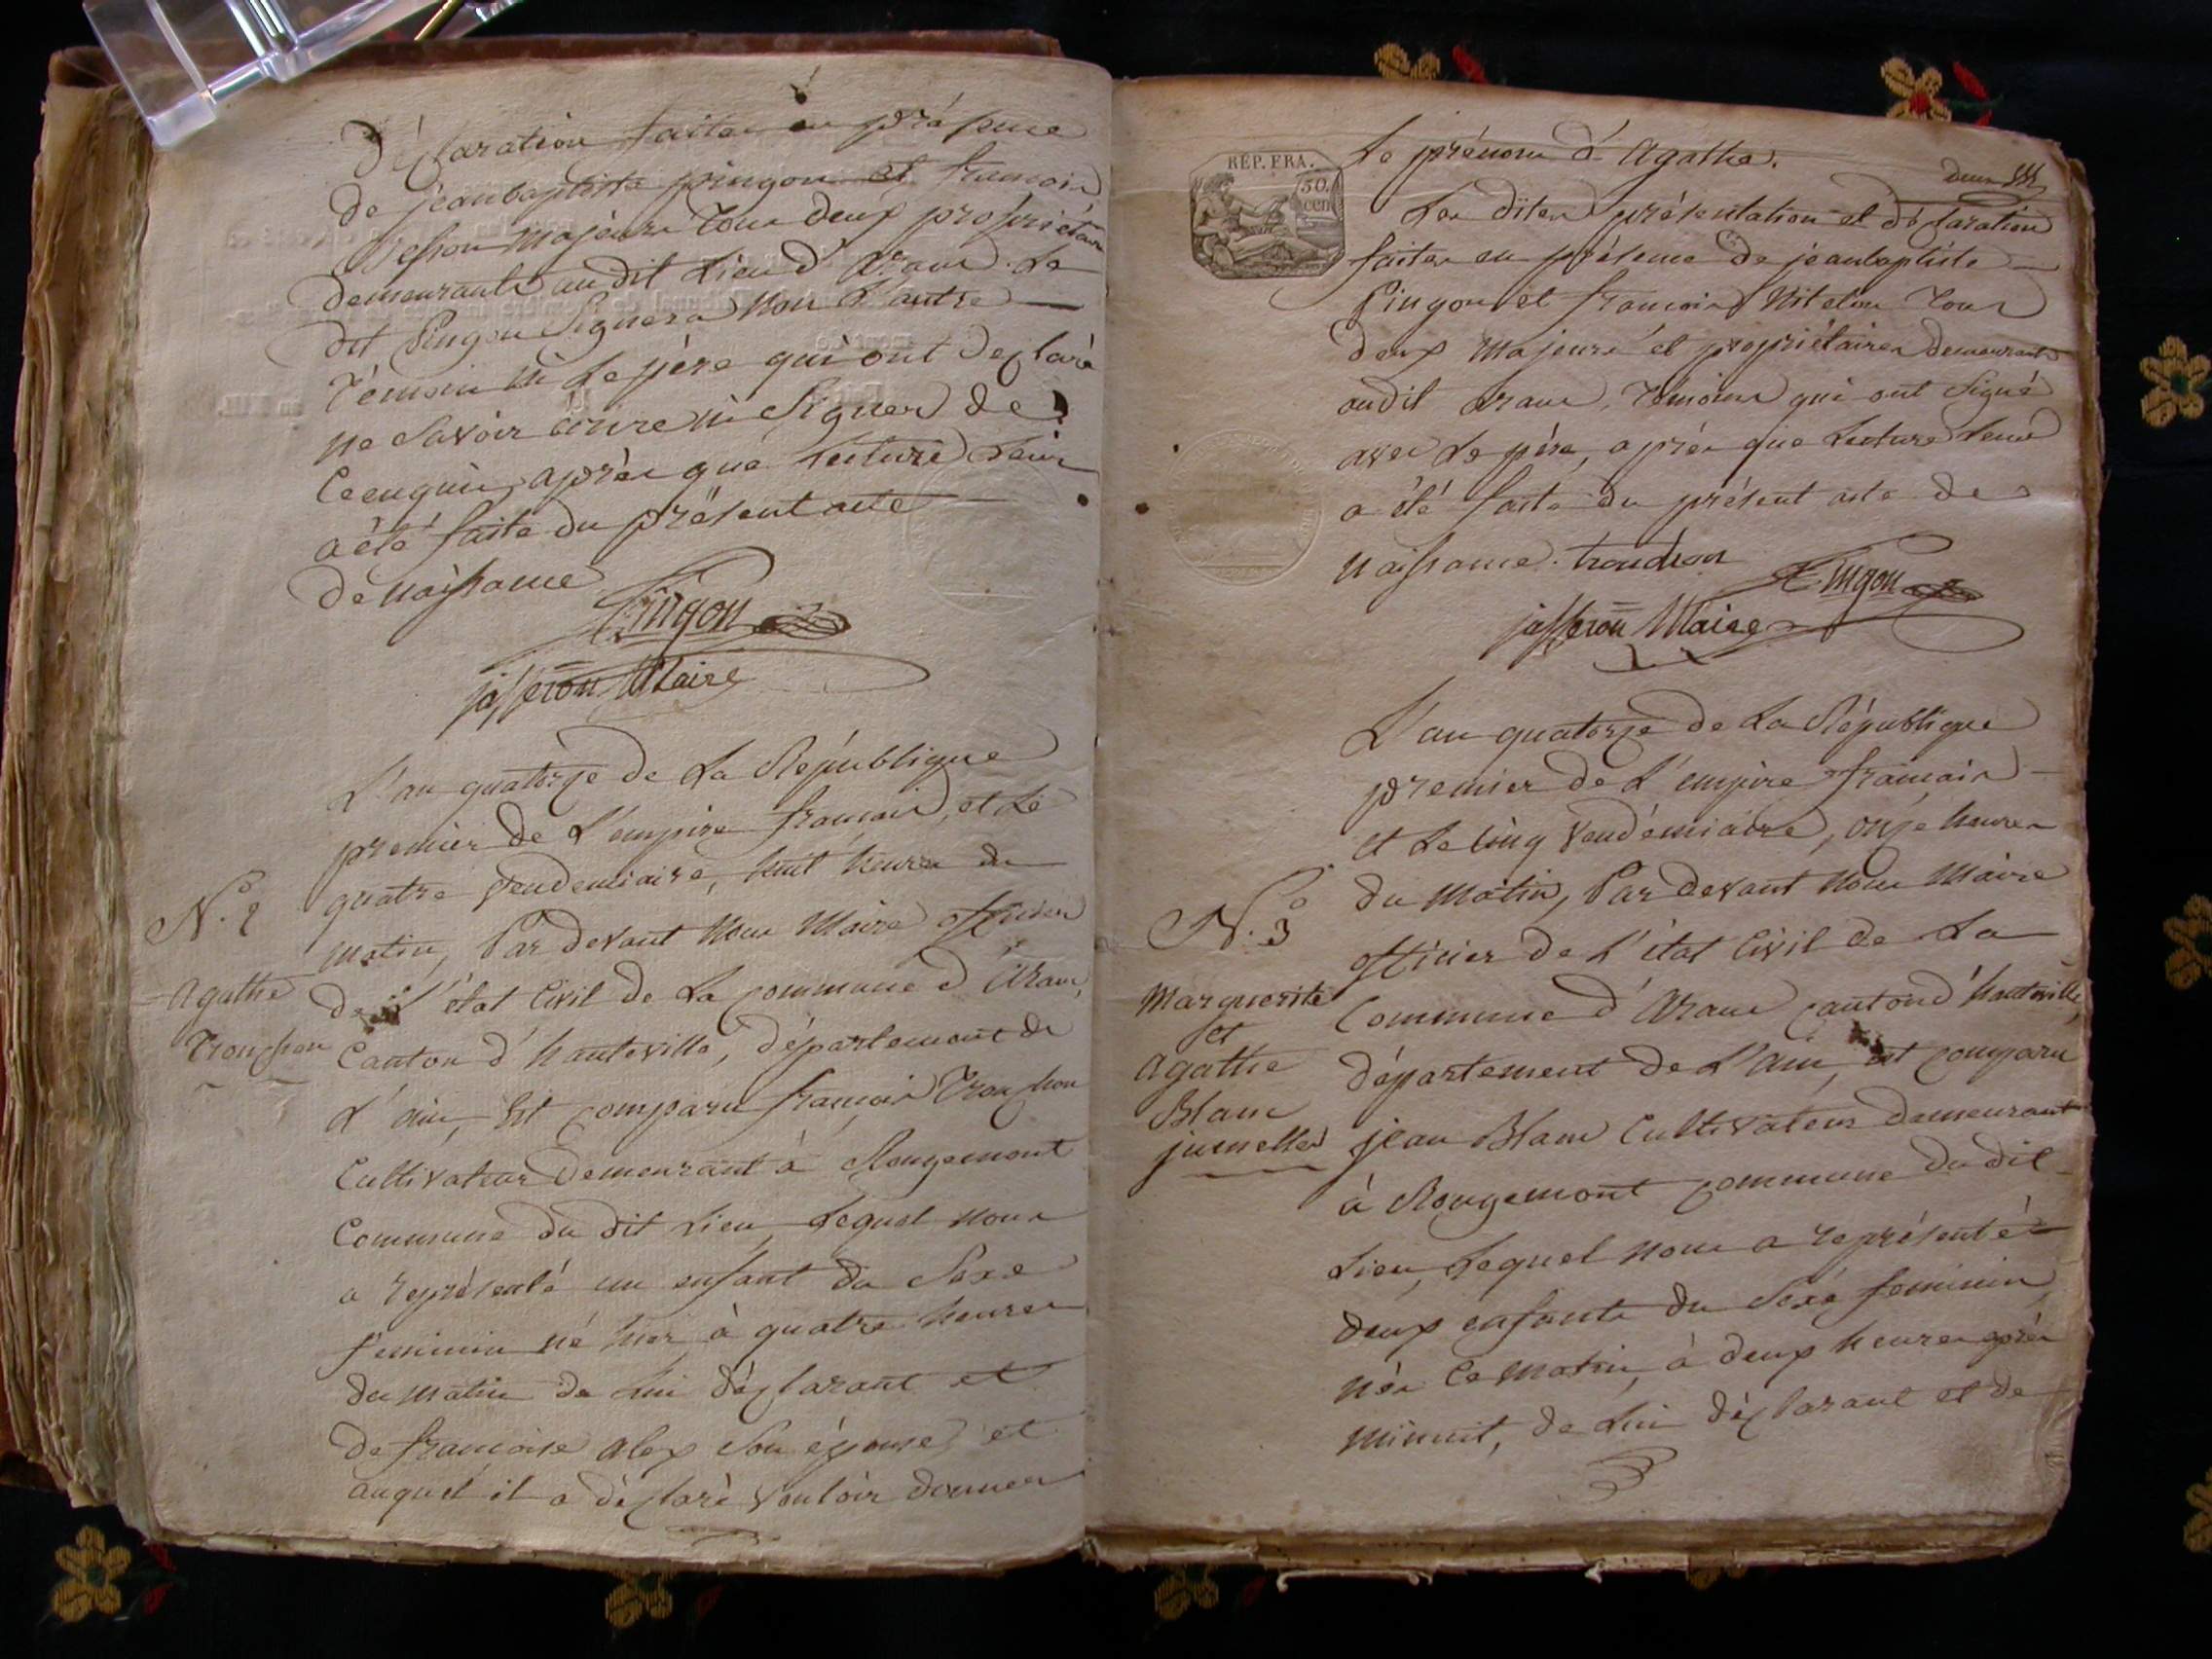 Déclaration faites en présence
de jeanbaptiste pingon et francois
Besson majeurs tous deux propriétaires
demeurants au dit Lieu d'Aranc. Le
dit Pingon Signera non L'autre
Témoin ni Le père qui ont déclaré
ne Savoir écrire ni Signer de
Ce enquis, après que Lecture Leur
a été faite du présent acte
de naissance
Pingon
jasseron Maire
L'an quatorze de La République
premier de L'empire francais, et Le
quatre vendemiaire, huit heures du
matin, Par devant nous Maire officier
de L'état Civil de La commune d'Aranc,
Canton d'hauteville, département de
L'ain, Est comparu francois Tronchon
Cultivateur Demeurant à Rougemont
Commune du dit Lieu, Lequel nous
a représenté un enfant du Sexe
feminin né hier à quatre heures
du matin de Lui déclarant et
de francoise alex Son épouse, et
auquel il a déclaré vouloir donner
N.º 2
Agathe
Tronchon
RÉP. FRA.
50.
cen
deux
Le prénom d'Agathe.
Les dites présentation et déclaration
faites en présence de jeanbaptiste
Pingon et francois Tous
deux majeurs et propriétaires demeurants
audit Aranc, Témoins qui ont Signé
avec Le père, après que Lecture Leur
a été faite du présent acte de
naissance. tronchon
Pingon
jasseron Maire
L'an quatorze de La République
premier de L'empire francais
et Le Cinq vendémiaire, onze heures
du matin, Par devant nous Maire
officier de L'état Civil de La
Commune d'Aranc canton d'hauteville,
département de L'ain, est comparu
jean Blanc Cultivateur demeurant
à Rougemont commune du dit
Lieu, Lequel nous a représenté
deux enfants du Sexe feminin,
nés Ce matin, à deux heures après
minuit, de Lui déclarant et de
N.º 3
Marguerite
et
Agathe
Blanc
jumelles